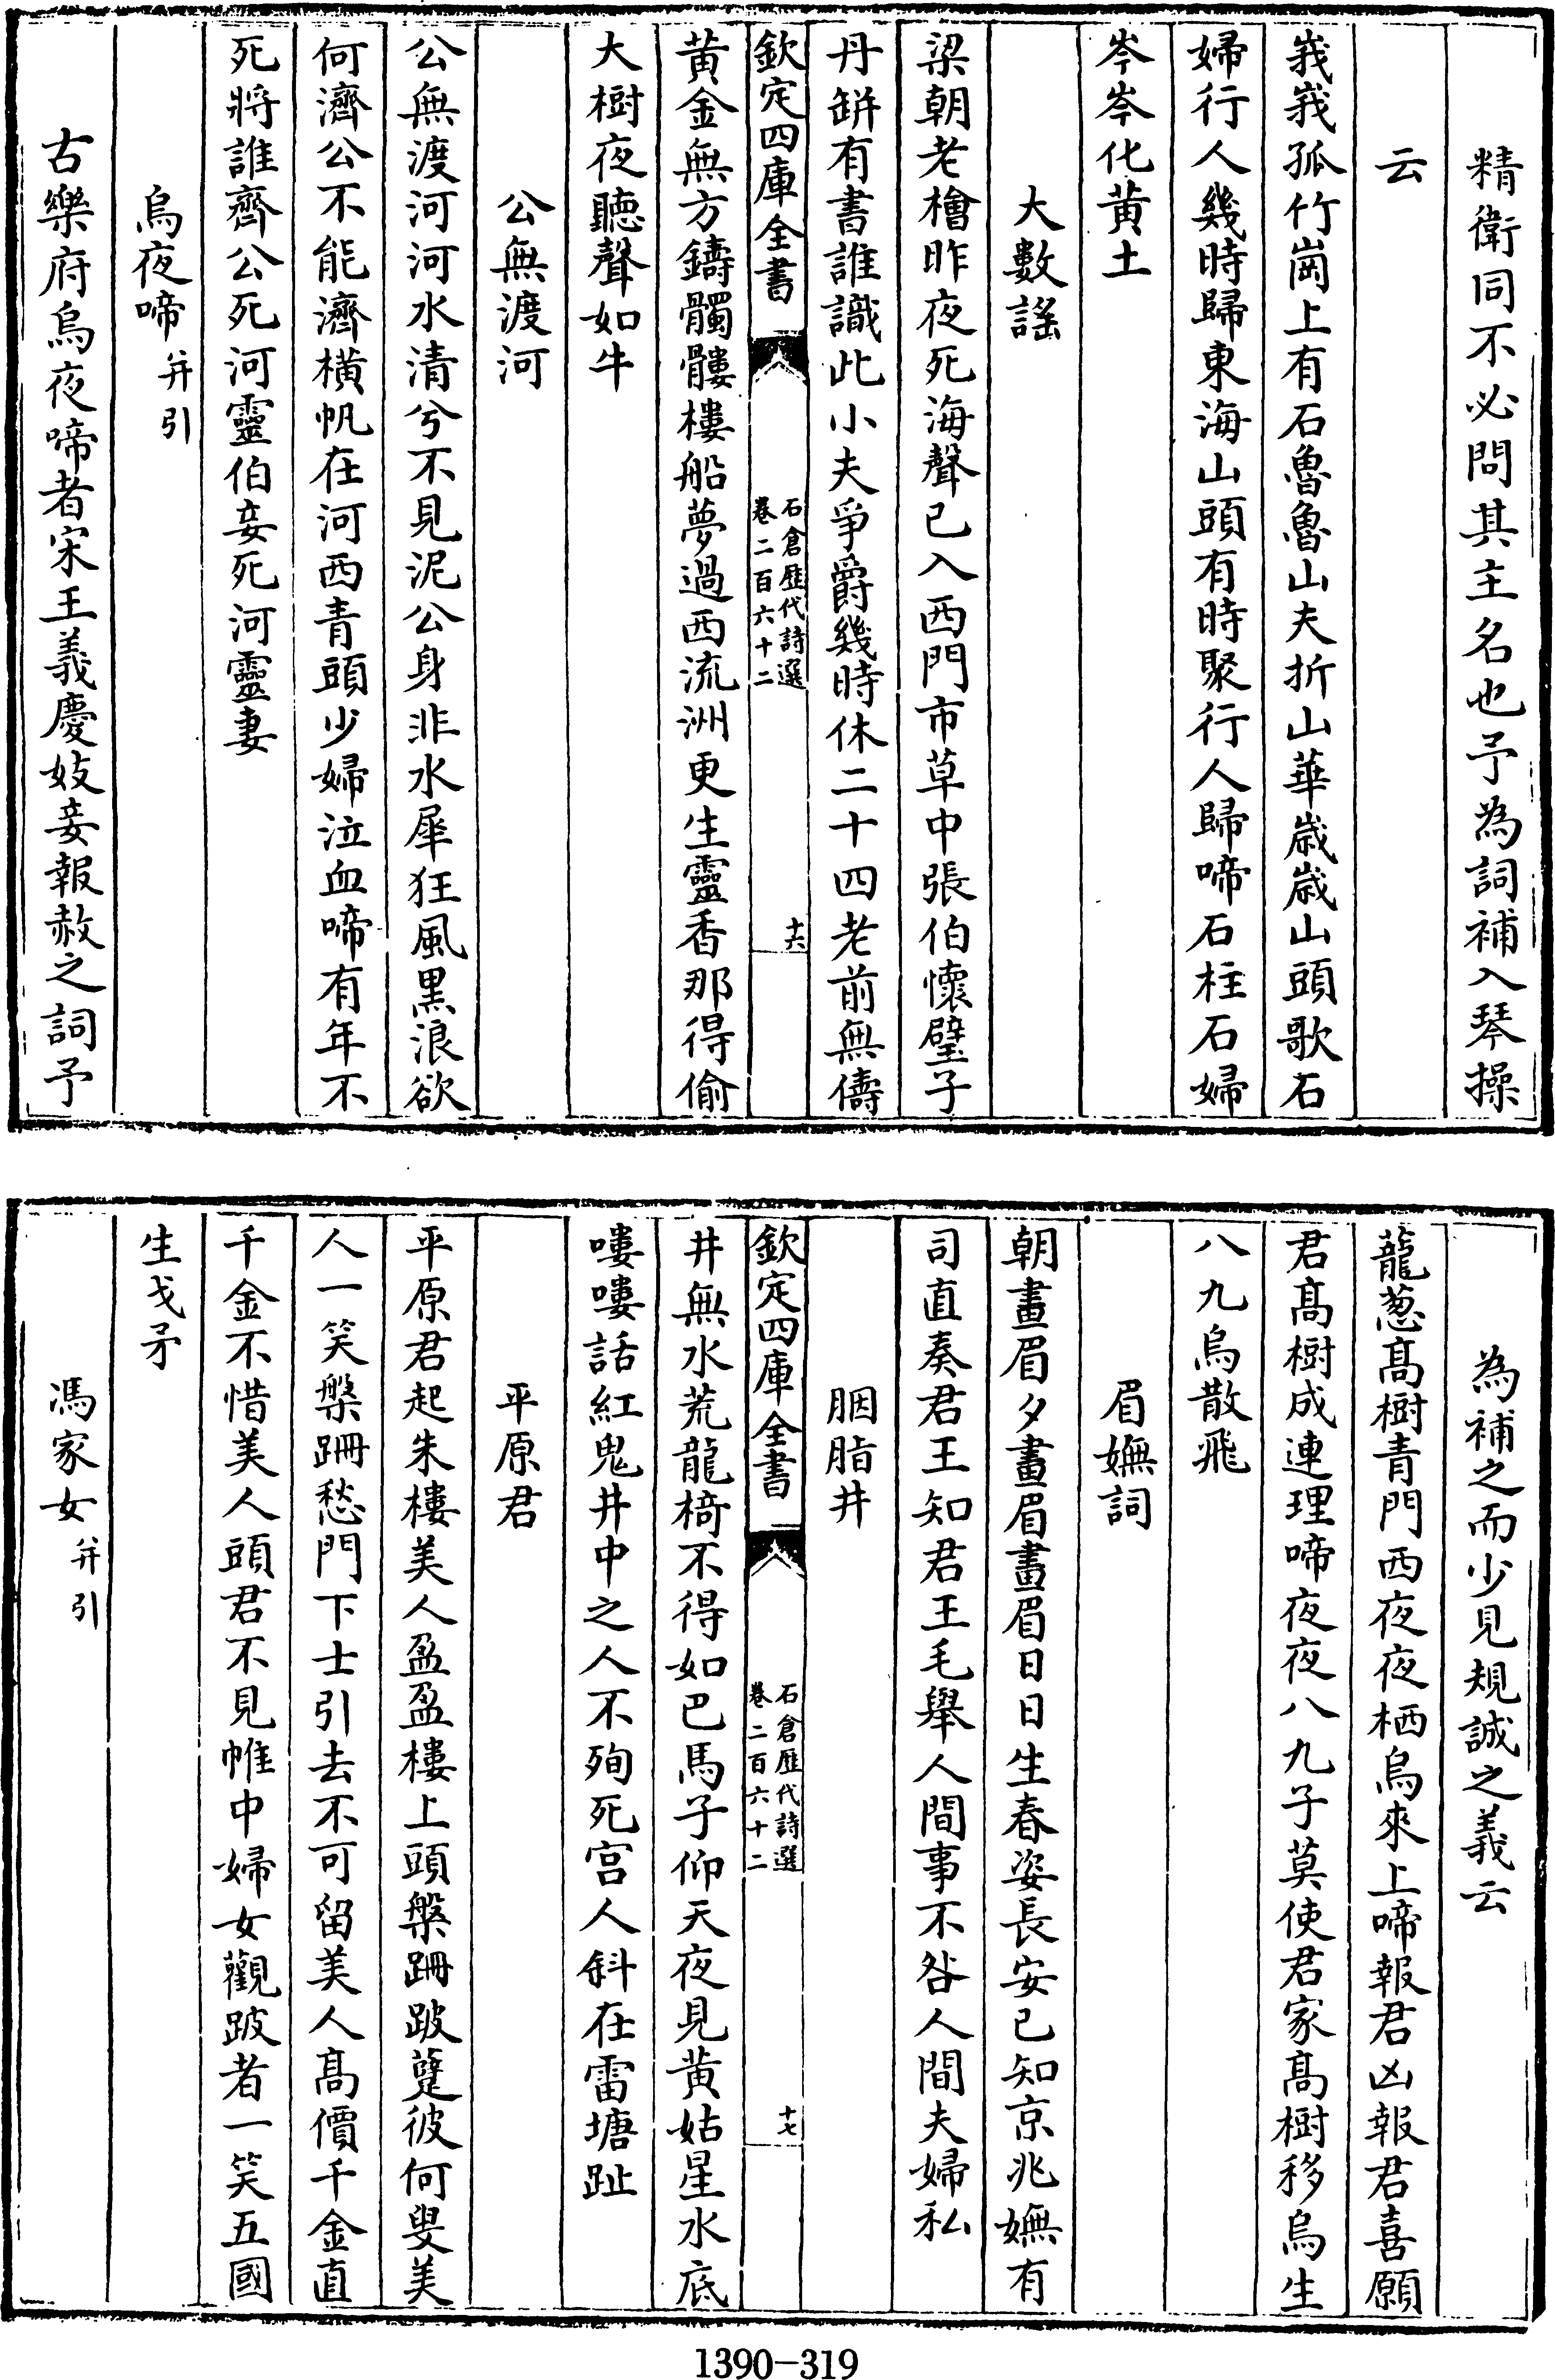 精衛同不必問其主名也予為詞補入琴操
云
峩峩孤竹崗上有石魯魯山夫折山華歳歳山頭歌石
婦行人幾時歸東海山頭有時聚行人歸啼石柱石婦
岑岑化黄土
大數謡
梁朝老檜昨夜死海聲已入西門市草中張伯懷璧子
丹缾有書誰識此小夫爭爵幾時休二十四老前無儔
欽定四庫全書
石倉歴代詩選
卷二百六十二
十六
黄金無方鑄髑髏樓船夢過西流洲更生靈香那得偷
大樹夜聽聲如牛
公無渡河
公無渡河河水清兮不見泥公身非水犀狂風黒浪欲
何濟公不能濟橫帆在河西青頭少婦泣血啼有年不
死將誰齊公死河靈伯妾死河靈妻
烏夜啼并引
古樂府烏夜啼者宋王義慶妓妾報赦之詞予
為補之而少見規誠之義云
蘢葱髙樹青門西夜夜栖烏來上啼報君凶報君喜願
君髙樹成連理啼夜夜八九子莫使君家髙樹移烏生
八九烏散飛
眉嫵詞
朝畫眉夕畫眉畫眉日日生春姿長安已知京兆嫵有
司直奏君王知君王毛舉人間事不咎人間夫婦私
胭脂井
欽定四庫全書
石倉歴代詩選
卷二百六十二
十七
井無水荒龍椅不得如巴馬子仰天夜見黄姑星水底
嘍嘍話紅鬼井中之人不殉死宫人斜在雷塘趾
平原君
平原君起朱樓美人盈盈樓上頭槃跚跛躄彼何叟美
人一笑槃跚愁門下士引去不可留美人髙價千金直
千金不惜美人頭君不見帷中婦女觀跛者一笑五國
生戈矛
馮家女并引
1390-319